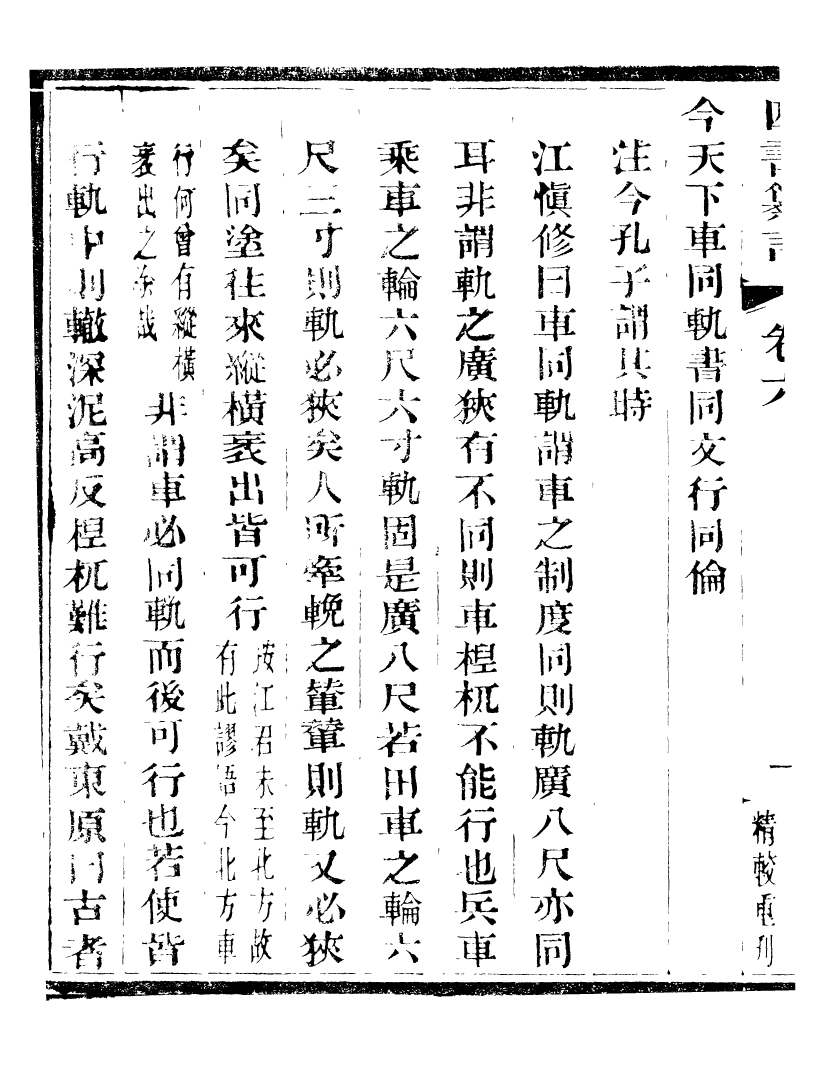 四書纂言 卷六 一 精較重刊
今天下車同軌書同文行同倫
注今孔子謂其時
江愼修曰車同軌謂車之制度同則軌廣八尺亦同
耳非謂軌之廣狹有不同則車桯杌不能行也兵車
乘車之輪六尺六寸軌固是廣八尺若田車之輪六
尺三寸則軌必狹矣人所牽輓之輂輦則軌又必狹
矣同塗往來縱橫衺出皆可行
按江君未至北方故
有此謬語今北方車
行何曾有縱橫
衺出之途哉
非謂車必同軌而後可行也若使皆
行軌中則轍深泥高反桯杌難行矣戴東原曰古者